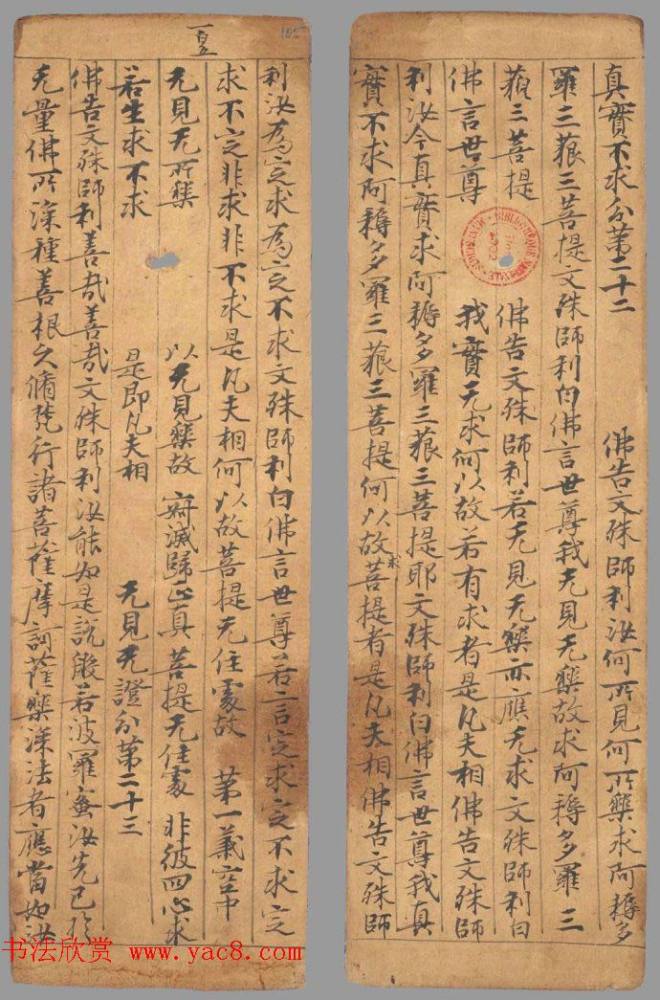 真實不求分第二十二　佛告文殊師利汝何所見何所樂求阿耨多
羅三藐三菩提文殊師利白佛言世尊我无見无樂故求阿耨多羅三
藐三菩提　佛告文殊師利若无見无樂亦應无求文殊師利白
佛言世尊　我實无求何以故若有求者是凡夫相佛告文殊師
利汝今真實求阿耨多羅三藐三菩提耶文殊師利白佛言世尊我真
實不求阿耨多羅三藐三菩提何以故求菩提者是凡夫相佛告文殊師
利汝為定求為定不求文殊師利白佛言世尊若言定求定不求定
求不定非求非不求是凡夫相何以故菩提无住處故　第一義空中
无見无所樂　以无見樂故　寂滅歸正真　菩提无住處　非彼四心求
若生求不求　是即凡夫相　无見无證分第二十三
佛告文殊師利善哉善哉文殊師利汝能如是說般若波羅蜜汝先已於
无量佛所深種善根久脩梵行諸菩薩摩訶薩樂深法者應當如汝
书法欣赏 www.yac8.com